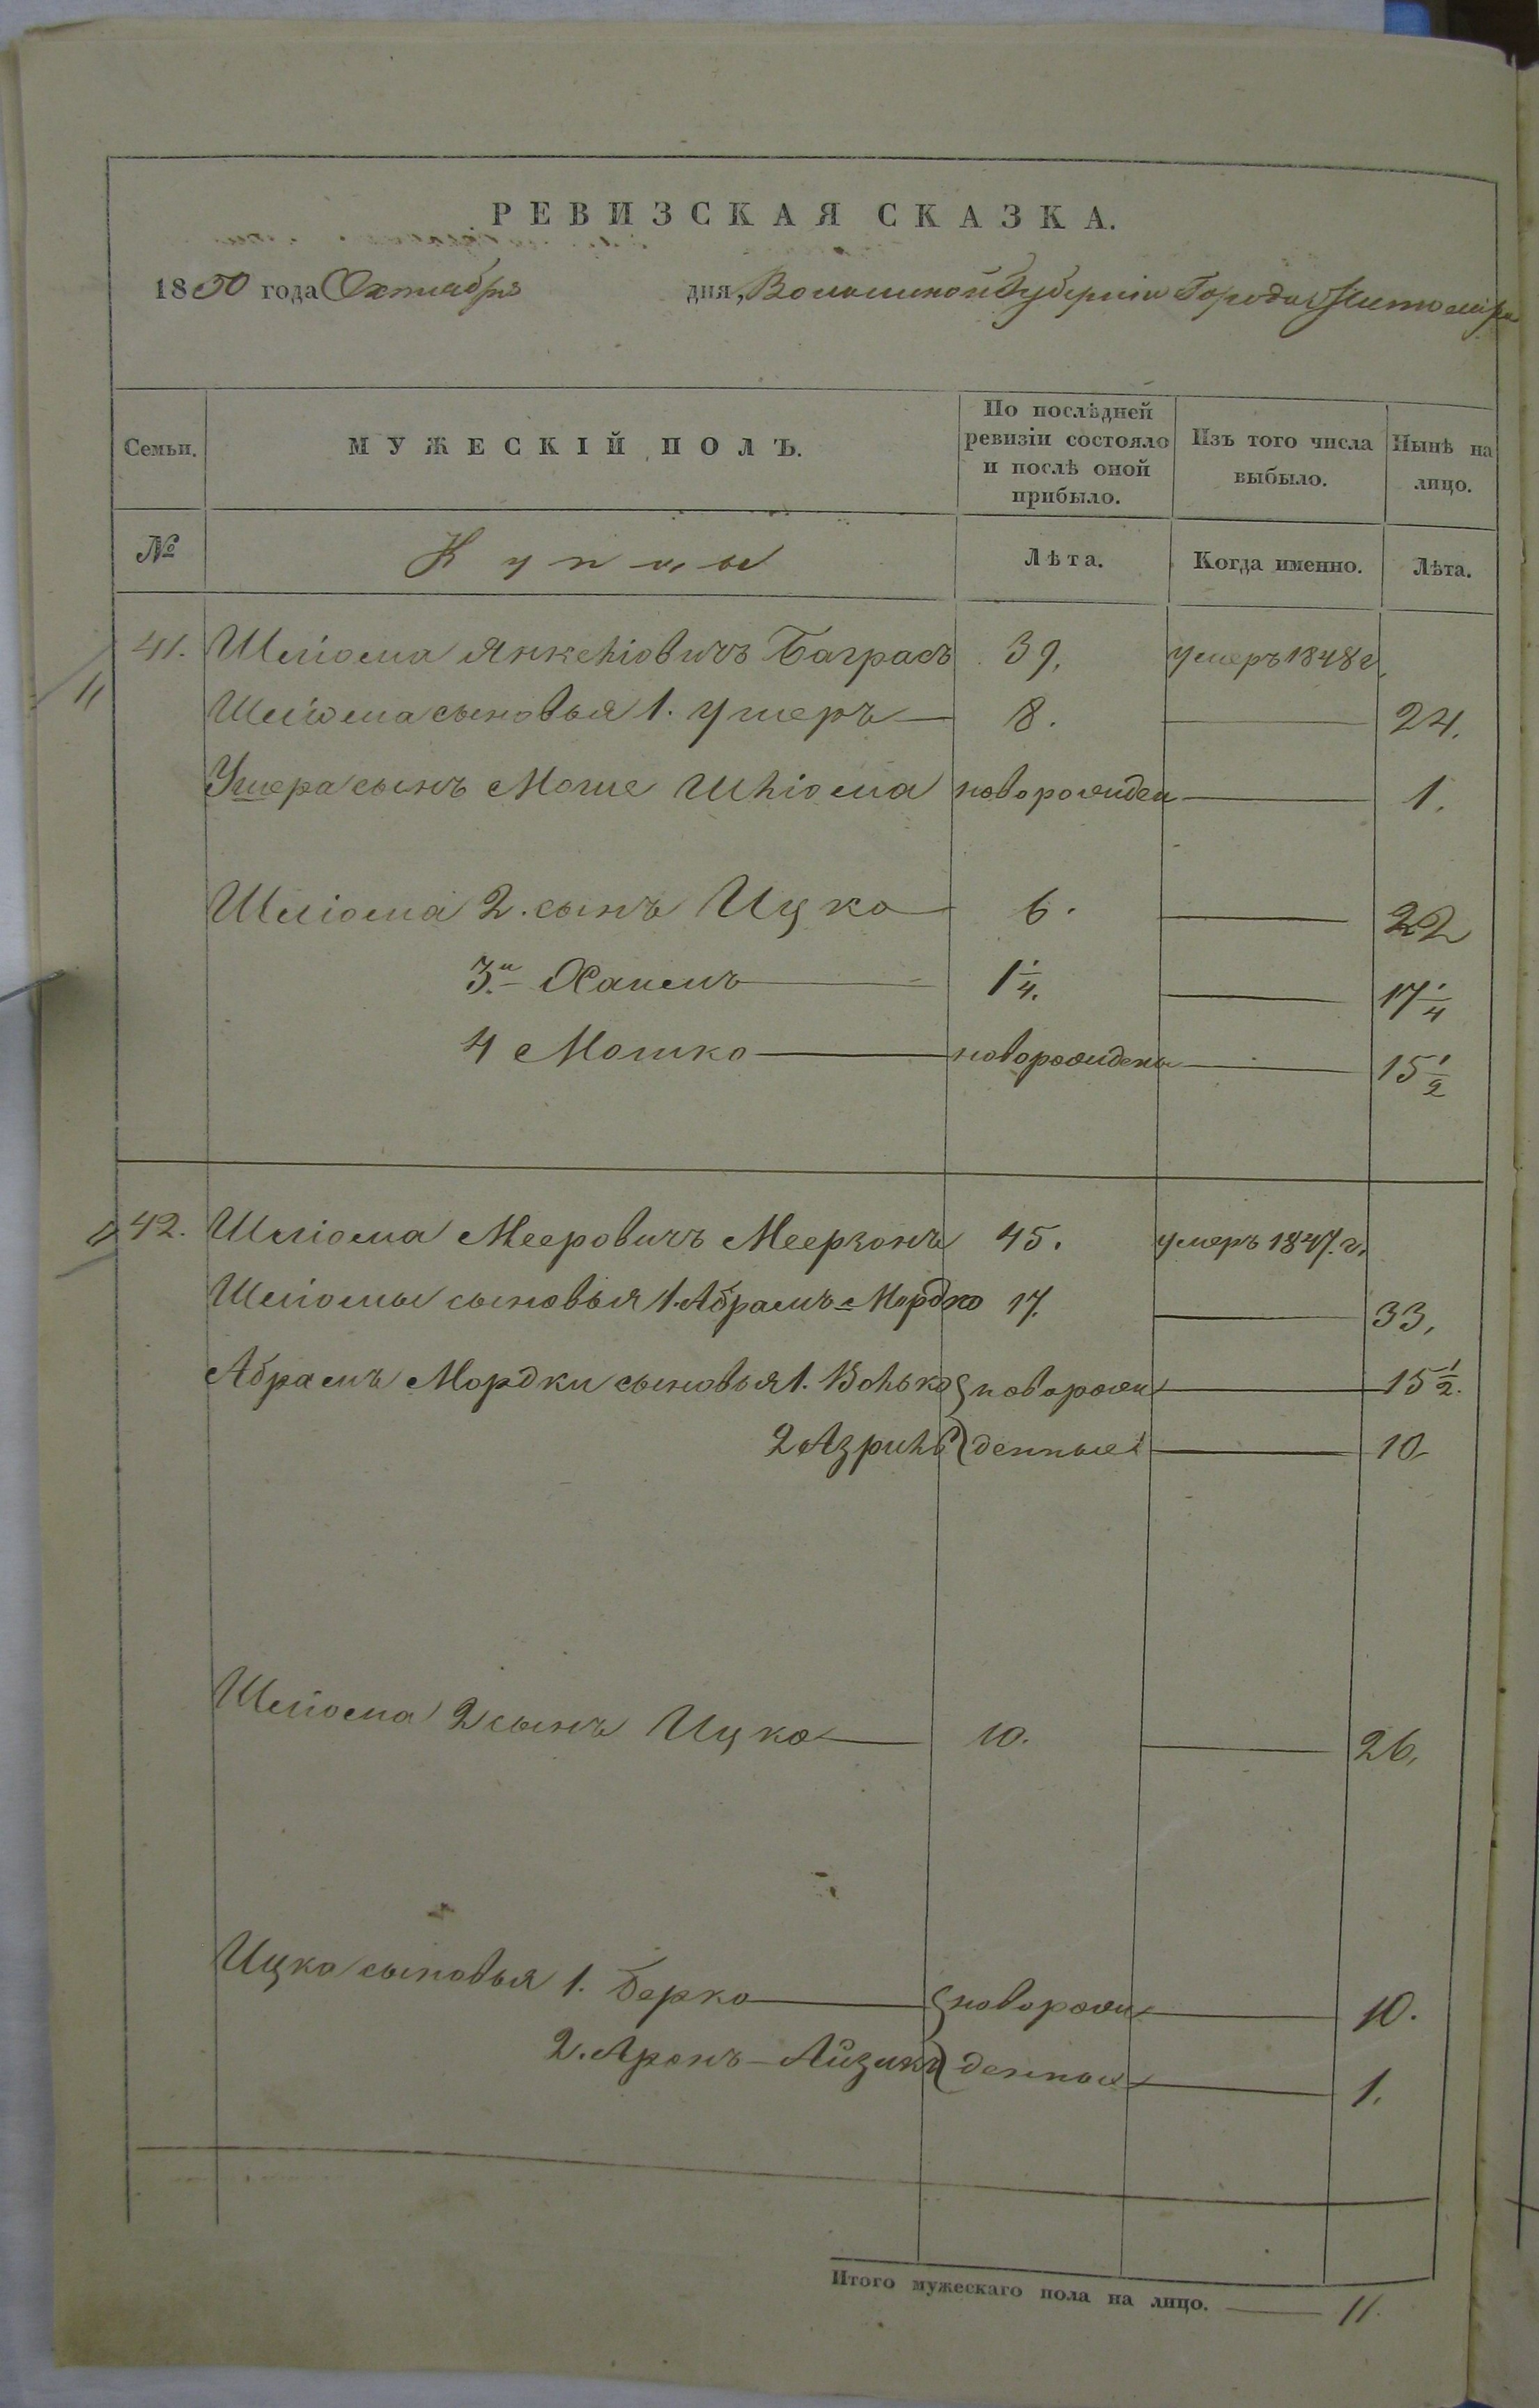 РЕВИЗСКАЯ СКАЗКА.
1850 года Октября дня, Волынской Губернiи Города Житомiра
Семьи. МУЖЕСКІЙ ПОЛЪ. По послѣдней ревизіи состояло и послѣ оной прибыло. Изъ того числа выбыло. Нынѣ на лицо.
№ Купцы Лѣта. Когда именно. Лѣта.
41. Шліома Янкеліовичъ Баграсъ 39. умеръ 1848 г.
11
Шліома сыновья 1. Ушеръ — 8. — 24.
Ушера сынъ Моше Шліома новорожден — 1.
Шліома 2. сынъ Ицко — 6. — 22
3.й Хаимъ — 1 1/4. — 17 1/4
4 Мошко — новорожденъ — 15 1/2
42. Шліома Мееровичъ Меерзонъ 45. умеръ 1847. г.
Шліомы сыновья 1. Абрамъ-Мордко 17. — 33.
Абрамъ Мордки сыновья 1. Волько новорож — 15 1/2.
2 Азриль денные — 10
Шліома 2 сынъ Ицко — 10. — 26.
Ицко сыновья 1. Берко — новорож — 10.
2. Аронъ-Айзикъ денные — 1.
Итого мужескаго пола на лицо. — 11.